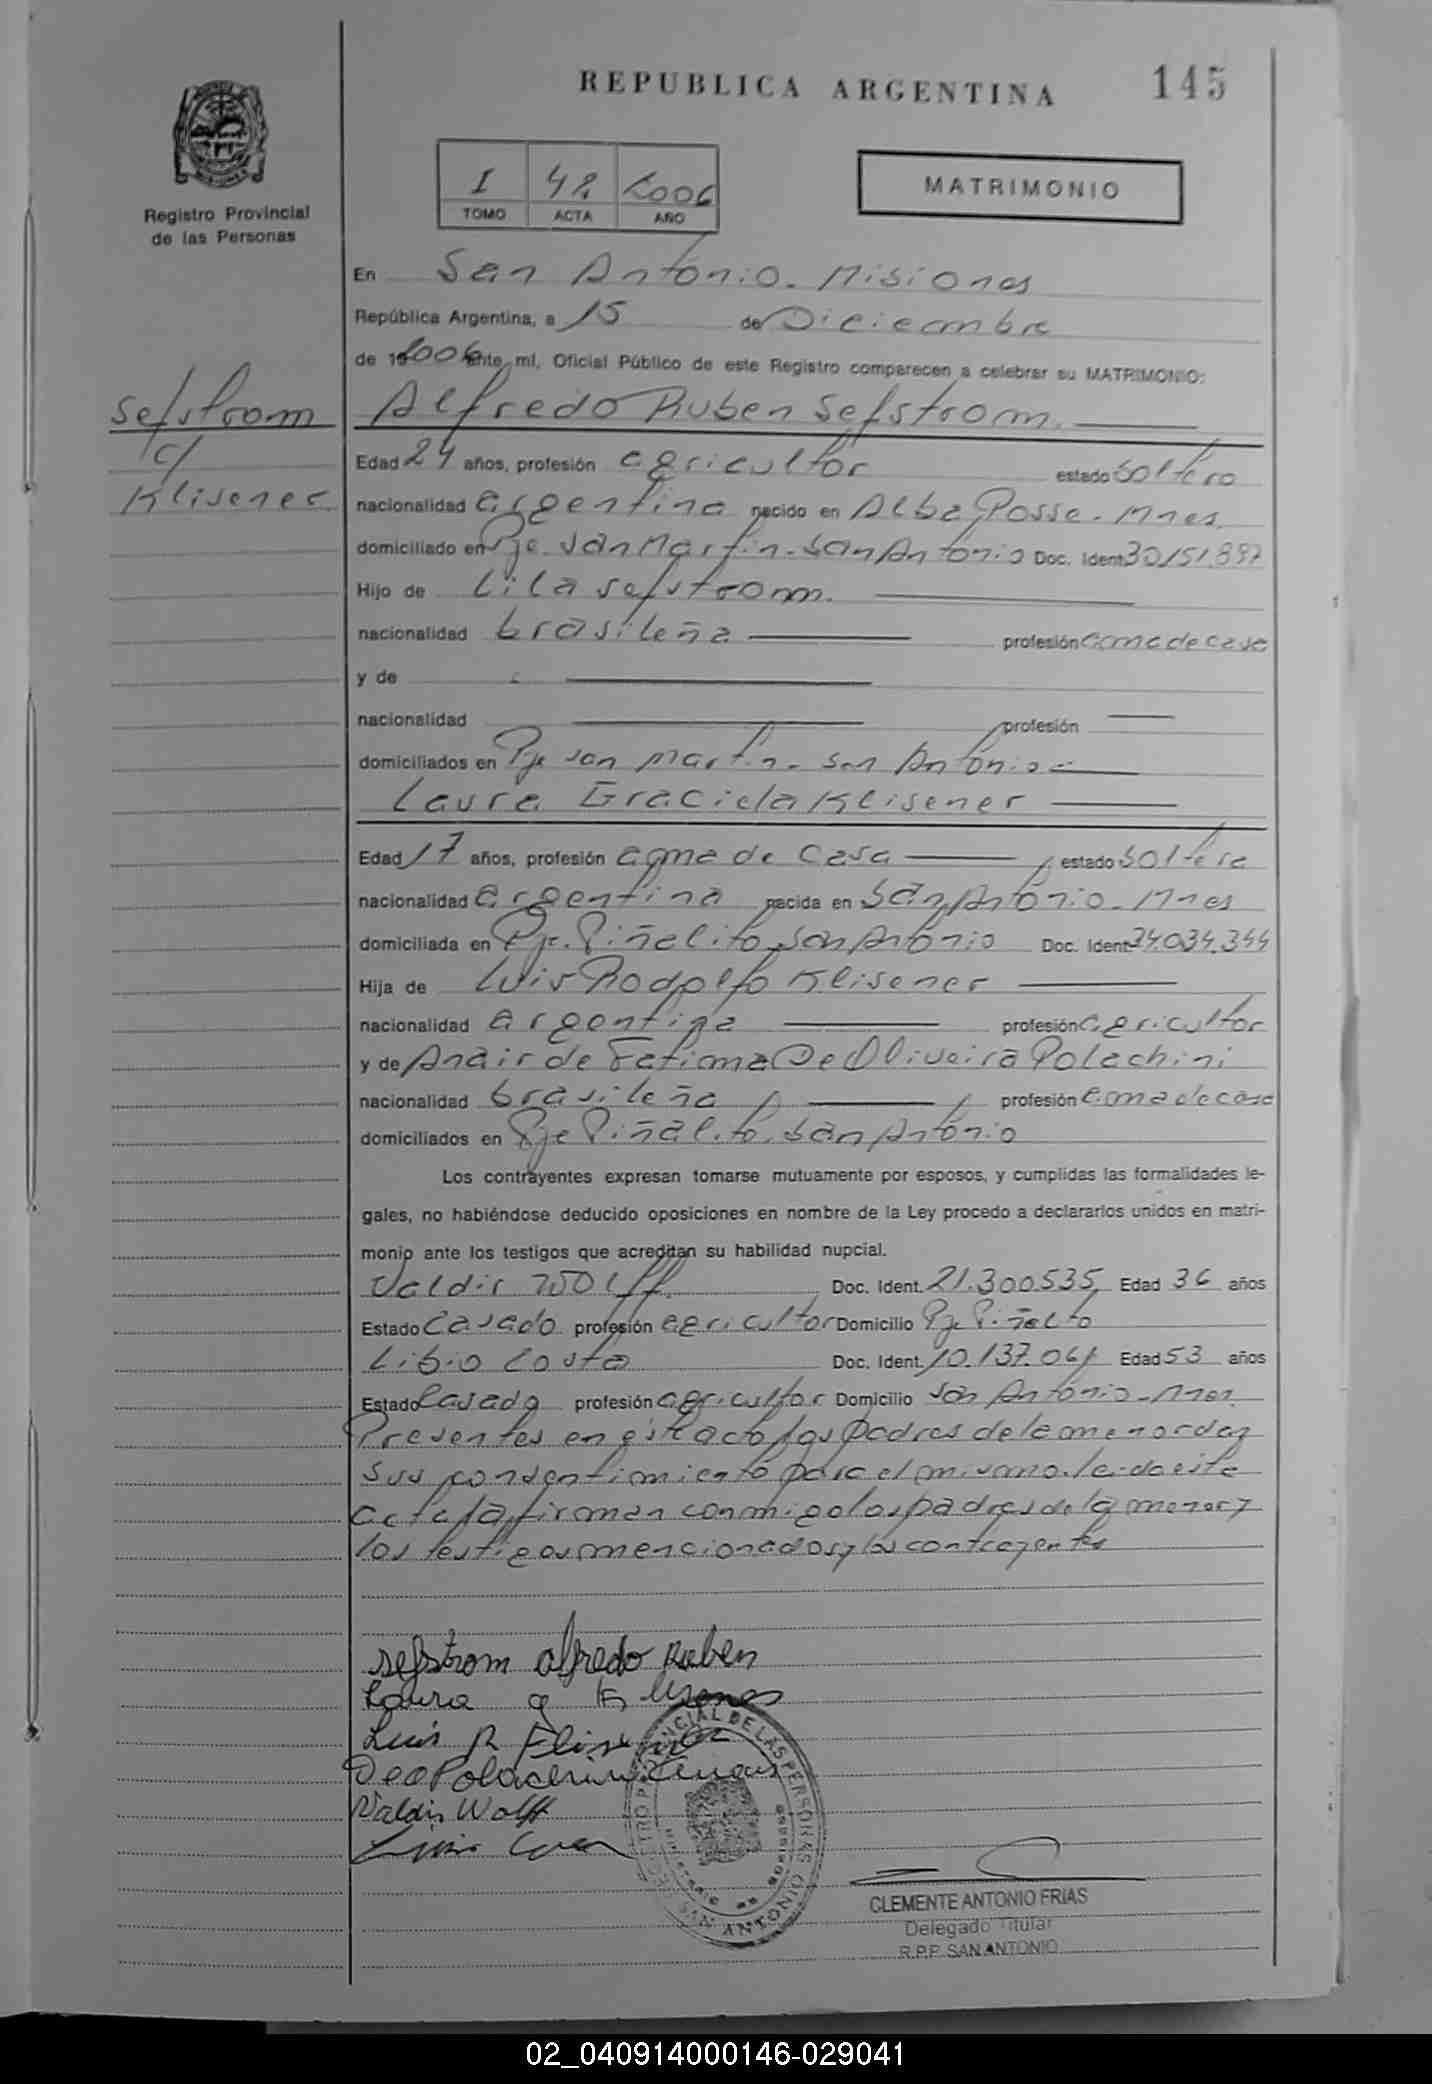 REPUBLICA ARGENTINA
145
Registro Provincial
de las Personas
I 42 2006
TOMO ACTA AÑO
MATRIMONIO
En San Antonio - Misiones
República Argentina, a 15 de Diciembre
de 2006 ante mí, Oficial Público de este Registro comparecen a celebrar su MATRIMONIO:
Sefstrom
c/
Klisener
Alfredo Ruben Sefstrom.
Edad 24 años, profesión agricultor estado soltero
nacionalidad argentina nacido en Alba Posse - Mnes.
domiciliado en Pje. San Martin - San Antonio Doc. Ident 30.151.897
Hijo de Lila Sefstrom.
nacionalidad brasileña profesión ama de casa
y de
nacionalidad profesión
domiciliados en Pje San Martin - San Antonio
Laura Graciela Klisener
Edad 17 años, profesión ama de casa estado soltera
nacionalidad argentina nacida en San Antonio - Mnes
domiciliada en Pje. Piñalito San Antonio Doc. Ident 34.034.344
Hija de Luis Rodolfo Klisener
nacionalidad argentina profesión agricultor
y de Anair de Fatima De Oliveira Polachini
nacionalidad brasileña profesión ama de casa
domiciliados en Pje Piñalito. San Antonio
Los contrayentes expresan tomarse mutuamente por esposos, y cumplidas las formalidades le-
gales, no habiéndose deducido oposiciones en nombre de la Ley procedo a declararlos unidos en matri-
monio ante los testigos que acreditan su habilidad nupcial.
Valdir Wolff. Doc. Ident. 21.300535 Edad 36 años
Estado Casado profesión agricultor Domicilio Pje Piñalito
Libio Costa Doc. Ident. 10.137.061 Edad 53 años
Estado Casado profesión agricultor Domicilio San Antonio - Mnes.
Presentes en este acto los padres de la menor dan
sus consentimiento para el mismo. leida esta
acta la firman conmigo los padres de la menor y
los testigos mencionados y los contrayentes
Sefstrom alfredo Ruben
Laura g Klisener
Luis R Klisener
De O Polachini
Valdir Wolff
CLEMENTE ANTONIO FRIAS
Delegado Titular
R.P.P. SAN ANTONIO
02_040914000146-029041